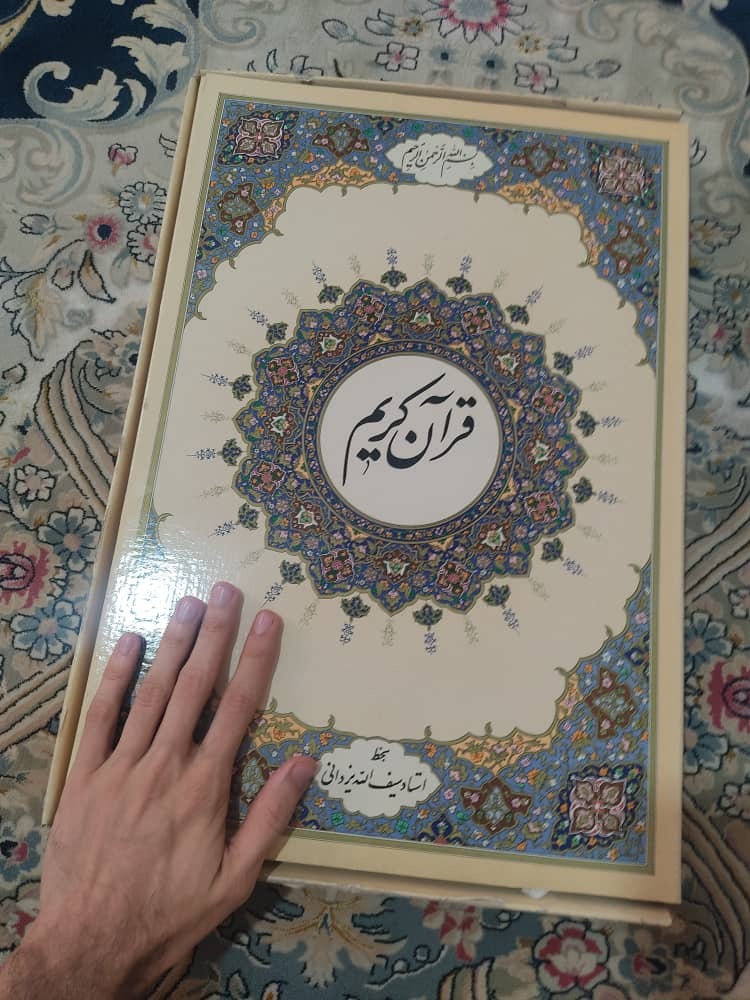 بِسْمِ اللهِ الرَّحْمٰنِ الرَّحِیمِ
قرآن کریم
بخط
استاد سیف الله یزدانی